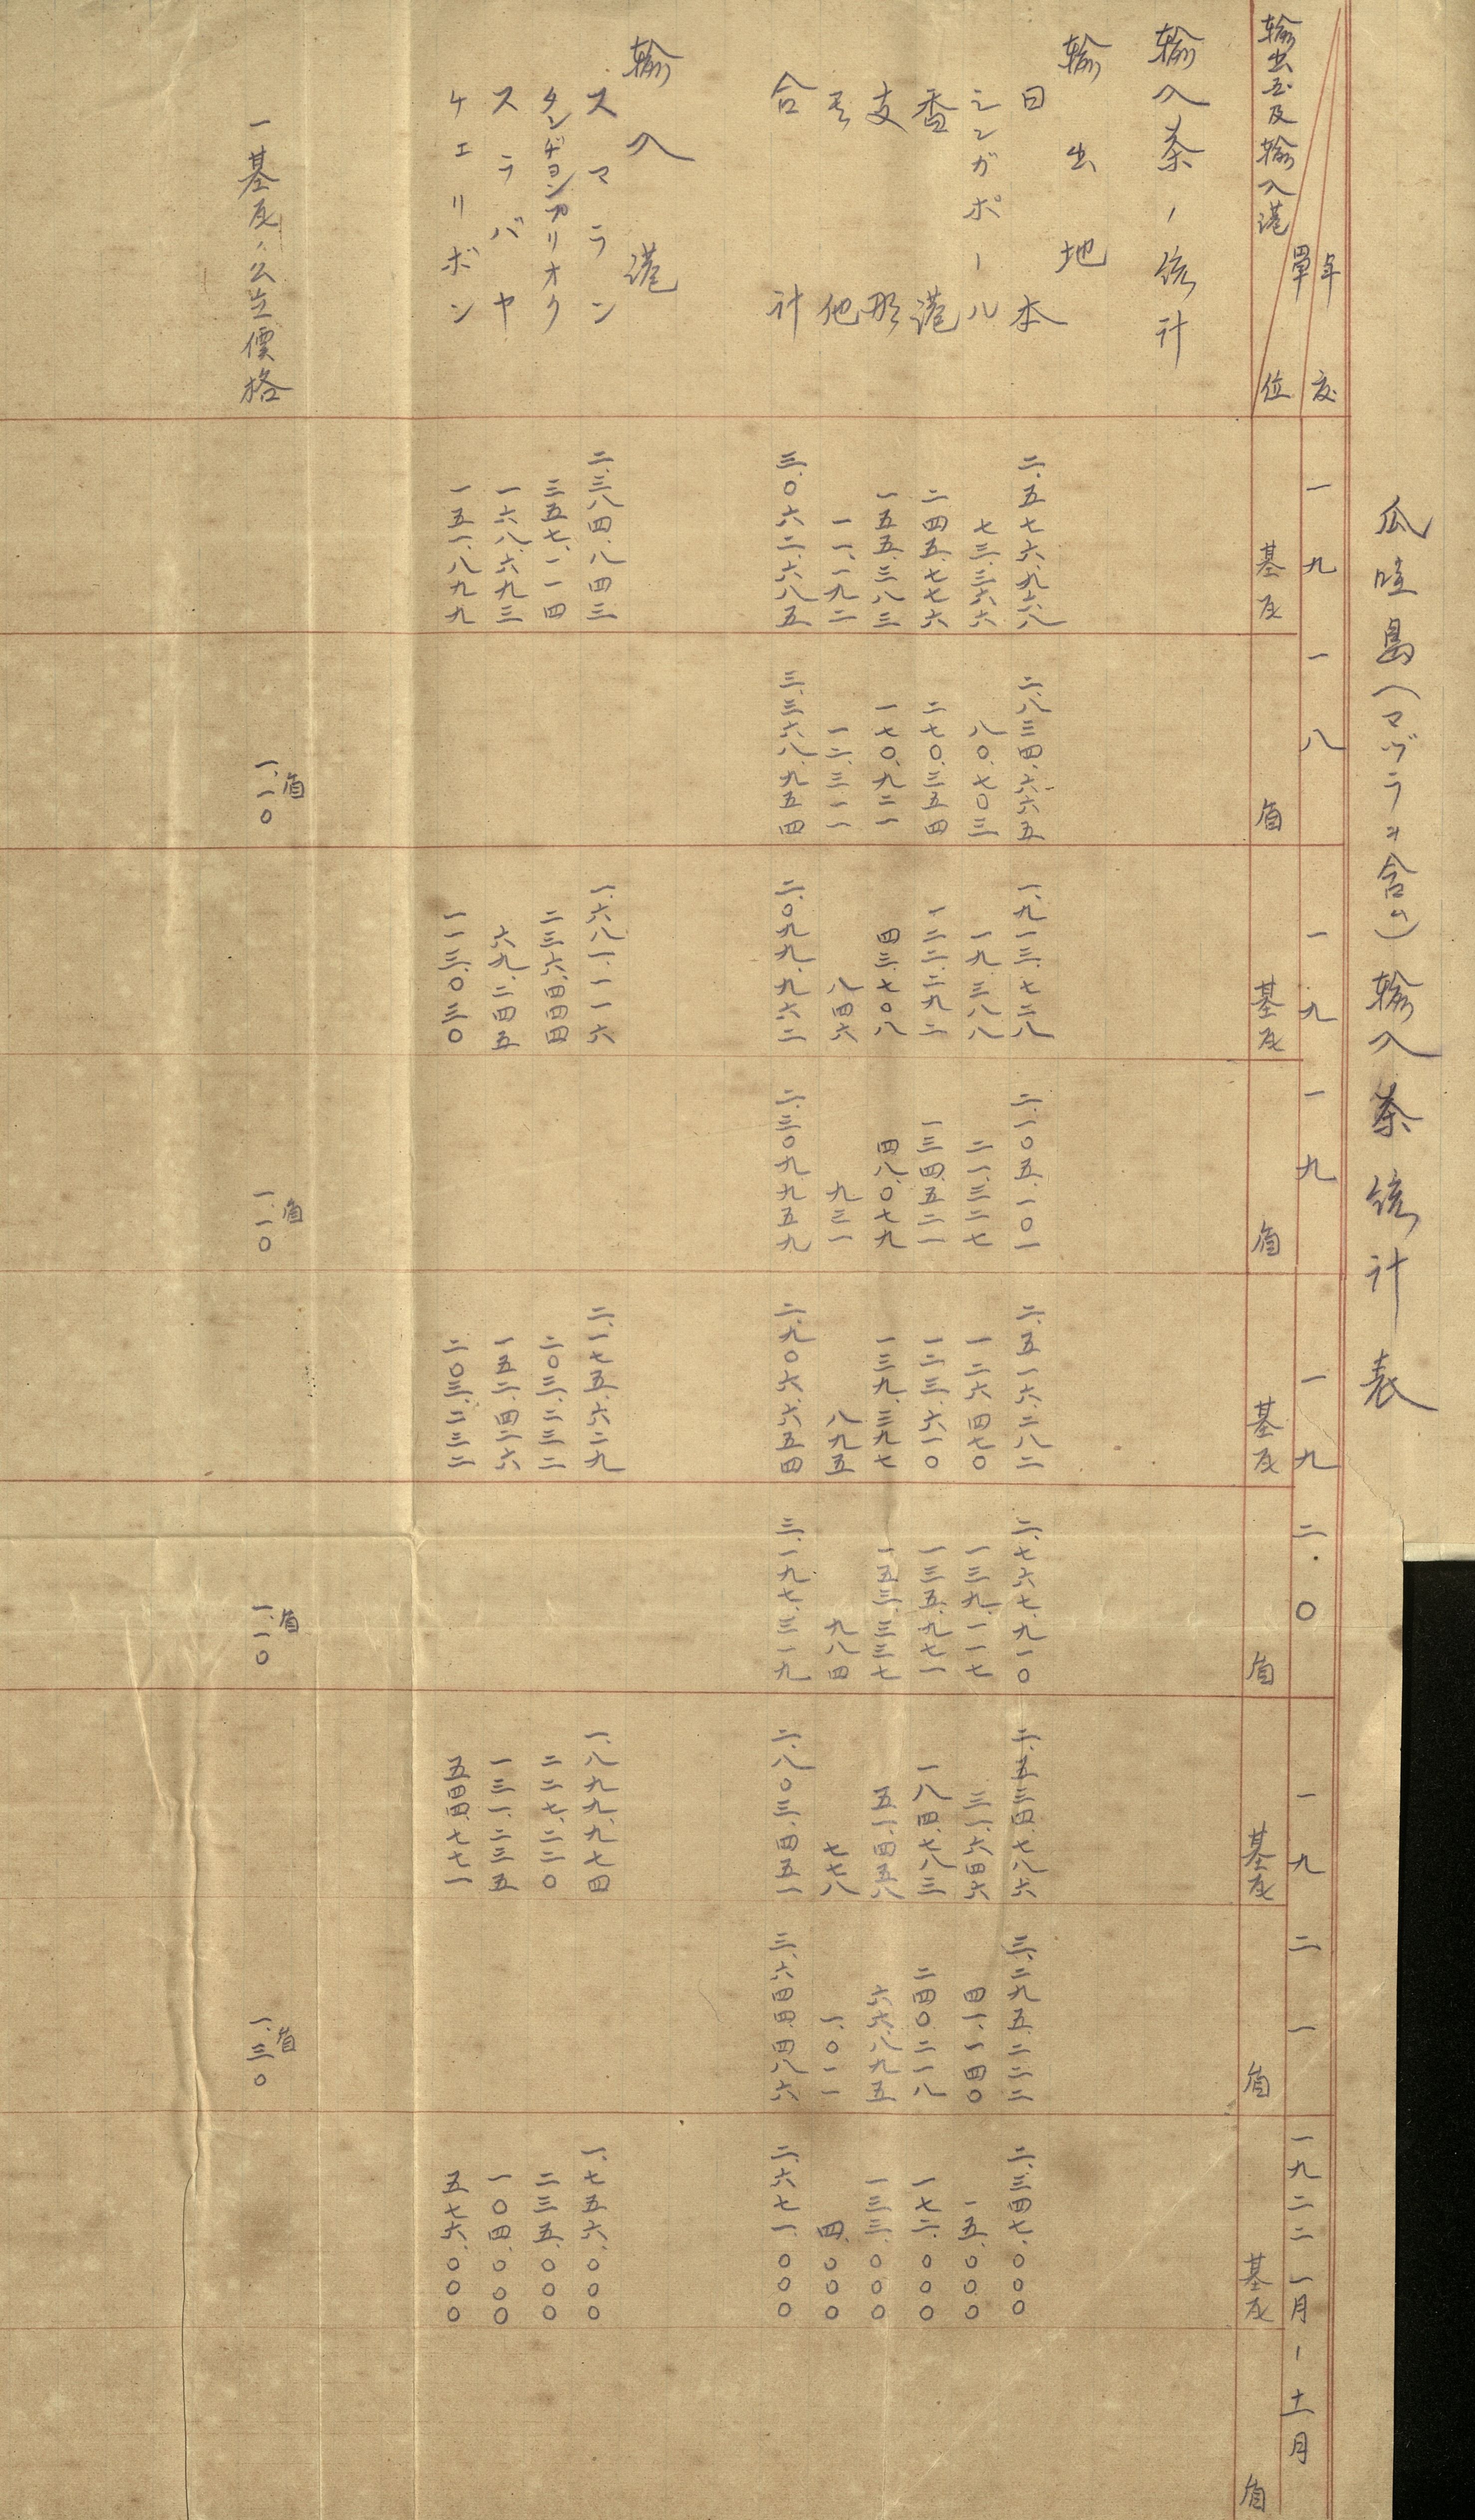 瓜哇島(マヅラヲ含ム)輸入茶統計表
年度 一九一八 一九一九 一九二〇 一九二一 一九二二 一月ー十一月
單位 基瓦 盾 基瓦 盾 基瓦 盾 基瓦 盾 基瓦 盾
輸出国及輸入港
輸入茶ノ統計
輸出地
日本 二、五七六、九六八 二、八三四、六六五 一、九一三、七二八 二、一〇五、一〇一 二、五一六、二八二 二、七六七、九一〇 二、五三四、七八六 三、二九五、二二二 二、三四七、〇〇〇
シンガポール 七三、三六六 八〇、七〇三 一九、三八八 二一、三二七 一二六、四七〇 一三九、一一七 三一、六四六 四一、一四〇 一五、〇〇〇
香港 二四五、七七六 二七〇、三五四 一二二、二九二 一三四、五二一 一二三、六一〇 一三五、九七一 一八四、七八三 二四〇、二一八 一七二、〇〇〇
支那 一五五、三八三 一七〇、九二一 四三、七〇八 四八、〇七九 一三九、三九七 一五三、三三七 五一、四五八 六六、八九五 一三三、〇〇〇
其他 一一、一九二 一二、三一一 八四六 九三一 八九五 九八四 七七八 一、〇一一 四、〇〇〇
合計 三、〇六二、六八五 三、三六八、九五四 二、〇九九、九六二 二、三〇九、九五九 二、九〇六、六五四 三、一九七、三一九 二、八〇三、四五一 三、六四四、四八六 二、六七一、〇〇〇
輸入港
スマラン 二、三八四、八四三 一、六八一、一一六 二、一七五、六二九 一、八九九、九七四 一、七五六、〇〇〇
タンヂョンプリオク 三五七、一一四 二三六、四四四 二〇三、二三二 二二七、二二〇 二三五、〇〇〇
スラバヤ 一六八、六九三 六九、二四五 一五二、四二六 一三一、二三五 一〇四、〇〇〇
チェリボン 一五一、八九九 一一三、〇三〇 二〇三、二三二 五四四、七七一 五七六、〇〇〇
一基瓦ノ公定價格 盾 一、一〇 盾 一、一〇 盾 一、一〇 盾 一、三〇